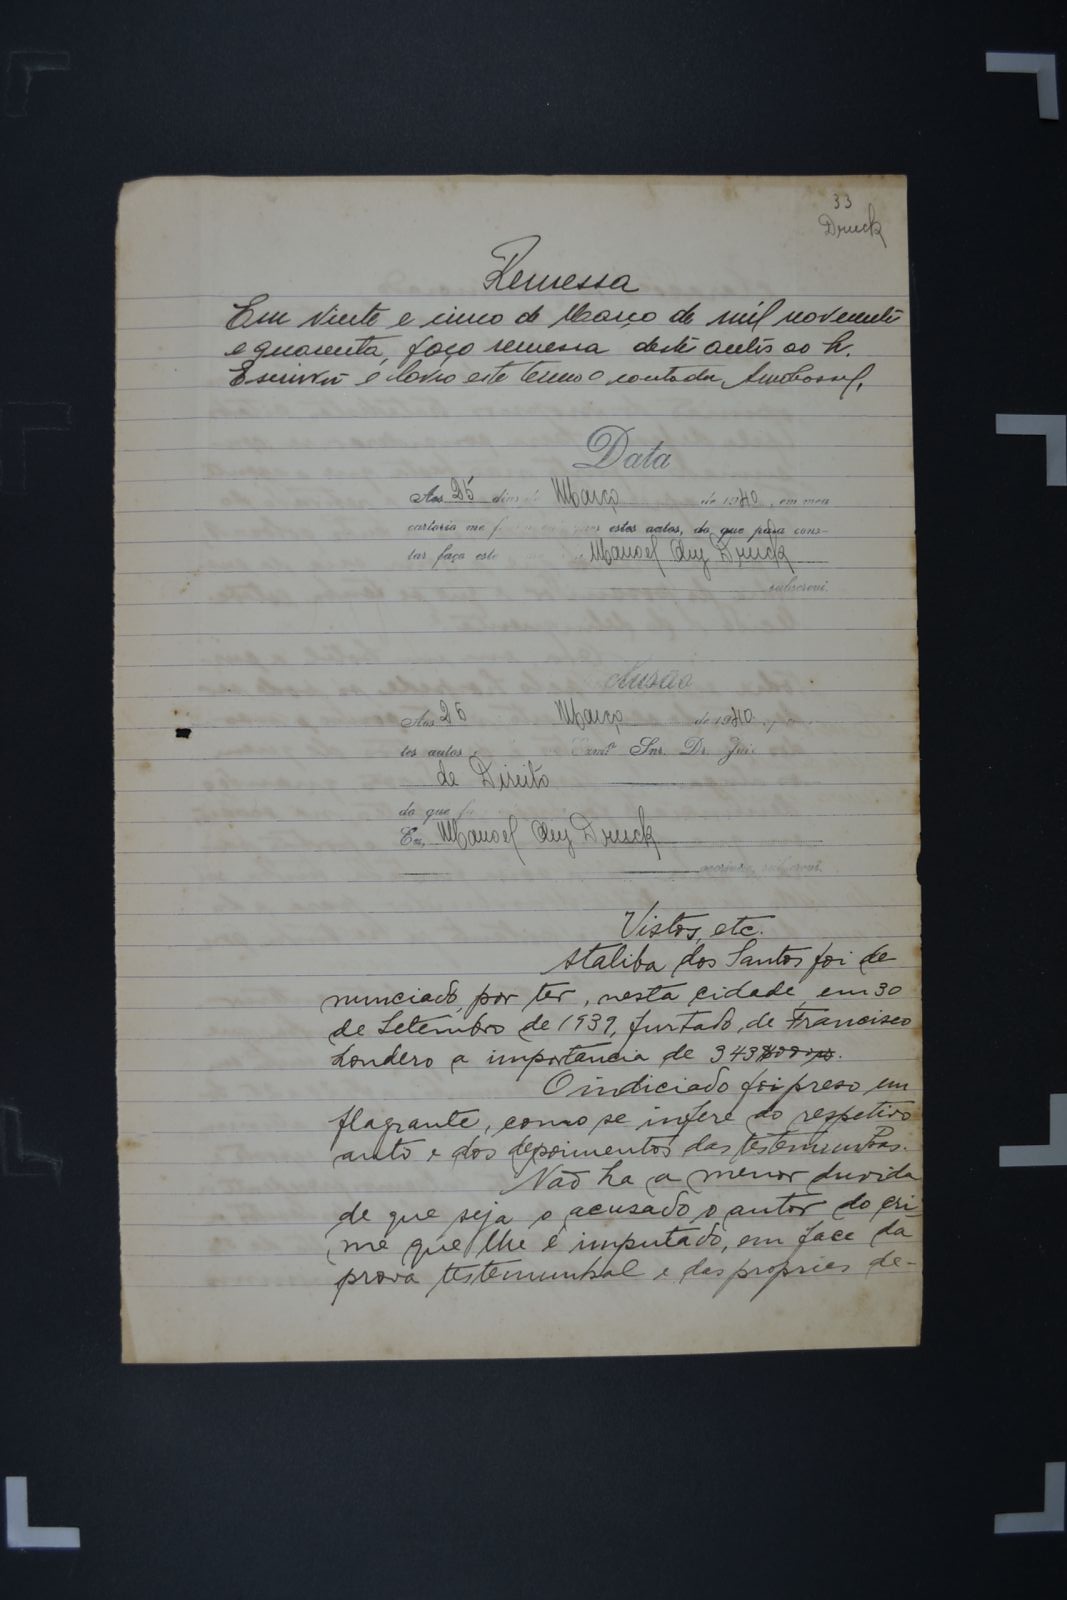 33
Druck
Remessa
Em vinte e cinco de Março de mil novecentos
e quarenta, faço remessa deste autos ao Sr.
Escrivão e lavro este termo
Data
Aos 25 dias de Março de 1940, em meu
cartorio me estes autos, do que para cons-
tar faço este Manoel Druck
subscrevi.
clusão
Aos 26 Março de 1940
tes autos Exmº Snr. Dr. Juiz
de Direito
do que
Eu, Manoel Druck
escrivão, subscrevi.
Vistos, etc.
Ataliba dos Santos foi de
nunciado, por ter, nesta cidade, em 30
de Setembro de 1939, furtado, de Francisco
Londero a importancia de 343$000.
O indiciado foi preso em
flagrante, como se infere do respetivo
auto e dos depoimentos das testemunhas.
Não ha a menor duvida
de que seja o acusado o autor do cri-
me que lhe é imputado, em face da
prova testemunhal e das proprias de-